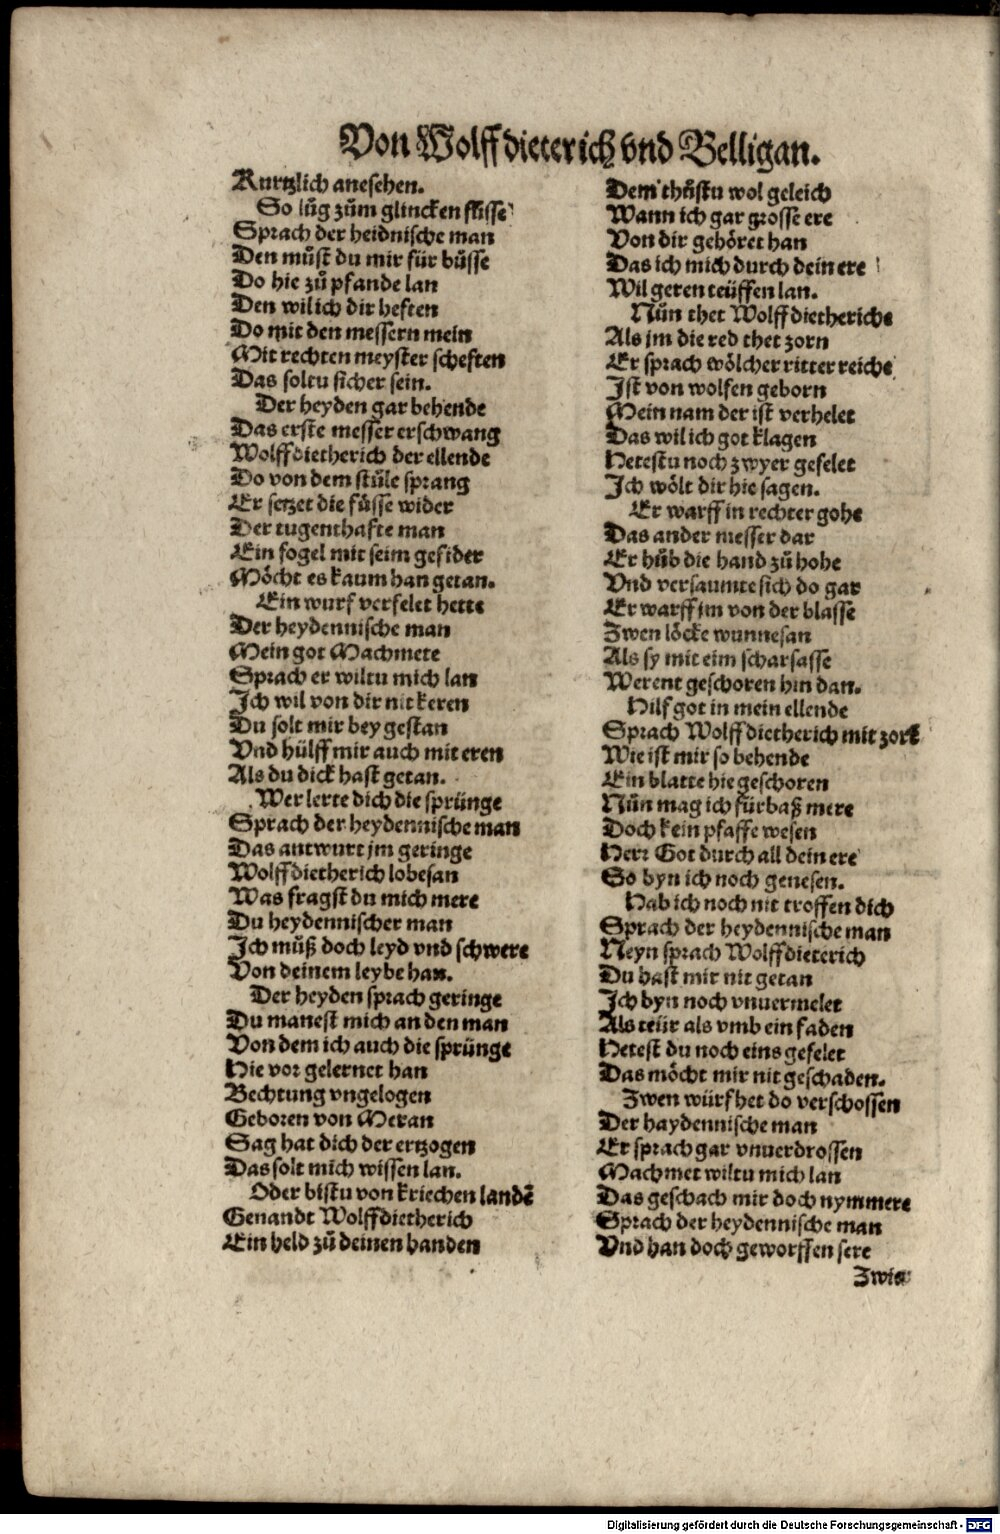 Von Wolffdieterich vnd Belligan.
Kurtzlich anesehen.
So lůg zům glincken fůsse
Sprach der heidnische man
Den můst du mir für bůsse
Do hie zů pfande lan
Den wil ich dir heften
Do mit den messern mein
Mit rechten meyster scheften
Das soltu sicher sein.
Der heyden gar behende
Das erste messer erschwang
Wolffdietherich der ellende
Do von dem stůle sprang
Er setzet die füsse wider
Der tugenthafte man
Ein fogel mit seim gefider
Möcht es kaum han getan.
Ein wurf verfelet hette
Der heydennische man
Mein got Machmete
Sprach er wiltu mich lan
Ich wil von dir nit keren
Du solt mir bey gestan
Vnd hülff mir auch mit eren
Als du dick hast getan.
Wer lerte dich die sprünge
Sprach der heydennische man
Das antwurt jm geringe
Wolffdietherich lobesan
Was fragst du mich mere
Du heydennischer man
Ich můß doch leyd vnd schwere
Von deinem leybe han.
Der heyden sprach geringe
Du manest mich an den man
Von dem ich auch die sprünge
Hie vor gelernet han
Bechtung vngelogen
Geboren von Meran
Sag hat dich der ertzogen
Das solt mich wissen lan.
Oder bistu von kriechen landē
Genandt Wolffdietherich
Ein held zů deinen handen
Dem thůstu wol geleich
Wann ich gar grosse ere
Von dir gehöret han
Das ich mich durch dein ere
Wil geren teüffen lan.
Nůn thet Wolffdietheriche
Als jm die red thet zorn
Er sprach wölcher ritter reiche
Ist von wolfen geborn
Mein nam der ist verhelet
Das wil ich got klagen
Hetestu noch zwyer gefelet
Ich wölt dir hie sagen.
Er warff in rechter gohe
Das ander messer dar
Er hůb die hand zů hohe
Vnd versaumte sich do gar
Er warff jm von der blasse
Zwen löcke wunnesan
Als sy mit eim scharsasse
Werent geschoren hin dan.
Hilf got in mein ellende
Sprach Wolffdietherich mit zorn
Wie ist mir so behende
Ein blatte hie geschoren
Nůn mag ich fürbaß mere
Doch kein pfaffe wesen
Herr Got durch all dein ere
So byn ich noch genesen.
Hab ich noch nit troffen dich
Sprach der heydennische man
Neyn sprach Wolffdieterich
Du hast mir nit getan
Ich byn noch vnuermelet
Als teür als vmb ein faden
Hetest du noch eins gefelet
Das möcht mir nit geschaden.
Zwen würf het do verschossen
Der haydennische man
Er sprach gar vnuerdrossen
Machmet wiltu mich lan
Das geschach mir doch nymmere
Sprach der heydennische man
Vnd han doch geworffen sere
Zwir
Digitalisierung gefördert durch die Deutsche Forschungsgemeinschaft - DFG